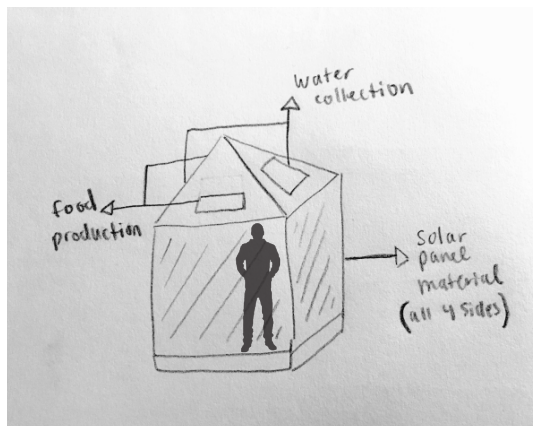 water
collection
food
production
solar
panel
material
(all 4 sides)